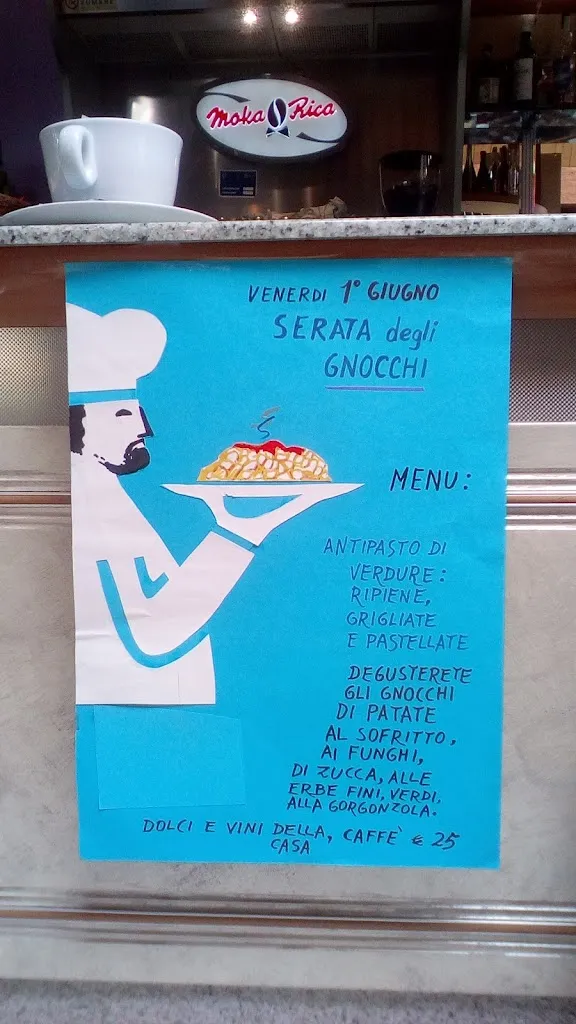 Moka Rica
VENERDI 1° GIUGNO
SERATA degli
GNOCCHI
MENU:
ANTIPASTO DI
VERDURE:
RIPIENE,
GRIGLIATE
E PASTELLATE
DEGUSTERETE
GLI GNOCCHI
DI PATATE
AL SOFRITTO,
AI FUNGHI,
DI ZUCCA, ALLE
ERBE FINI, VERDI,
ALLA GORGONZOLA.
DOLCI E VINI DELLA, CAFFÈ € 25
CASA